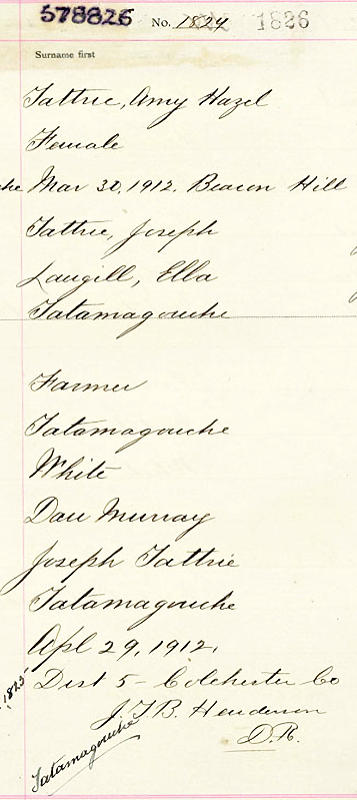 578826 No. 1824 1826
Surname first
Tattrie, Amy Hazel
Female
Mar 30, 1912. Beacon Hill
Tattrie, Joseph
Langill, Ella
Tatamagouche
Farmer
Tatamagouche
White
Dan Murray
Joseph Tattrie
Tatamagouche
Apl 29, 1912.
Dist 5 - Colchester Co
1825
J.T.B. Henderson
D.R.
Tatamagouche